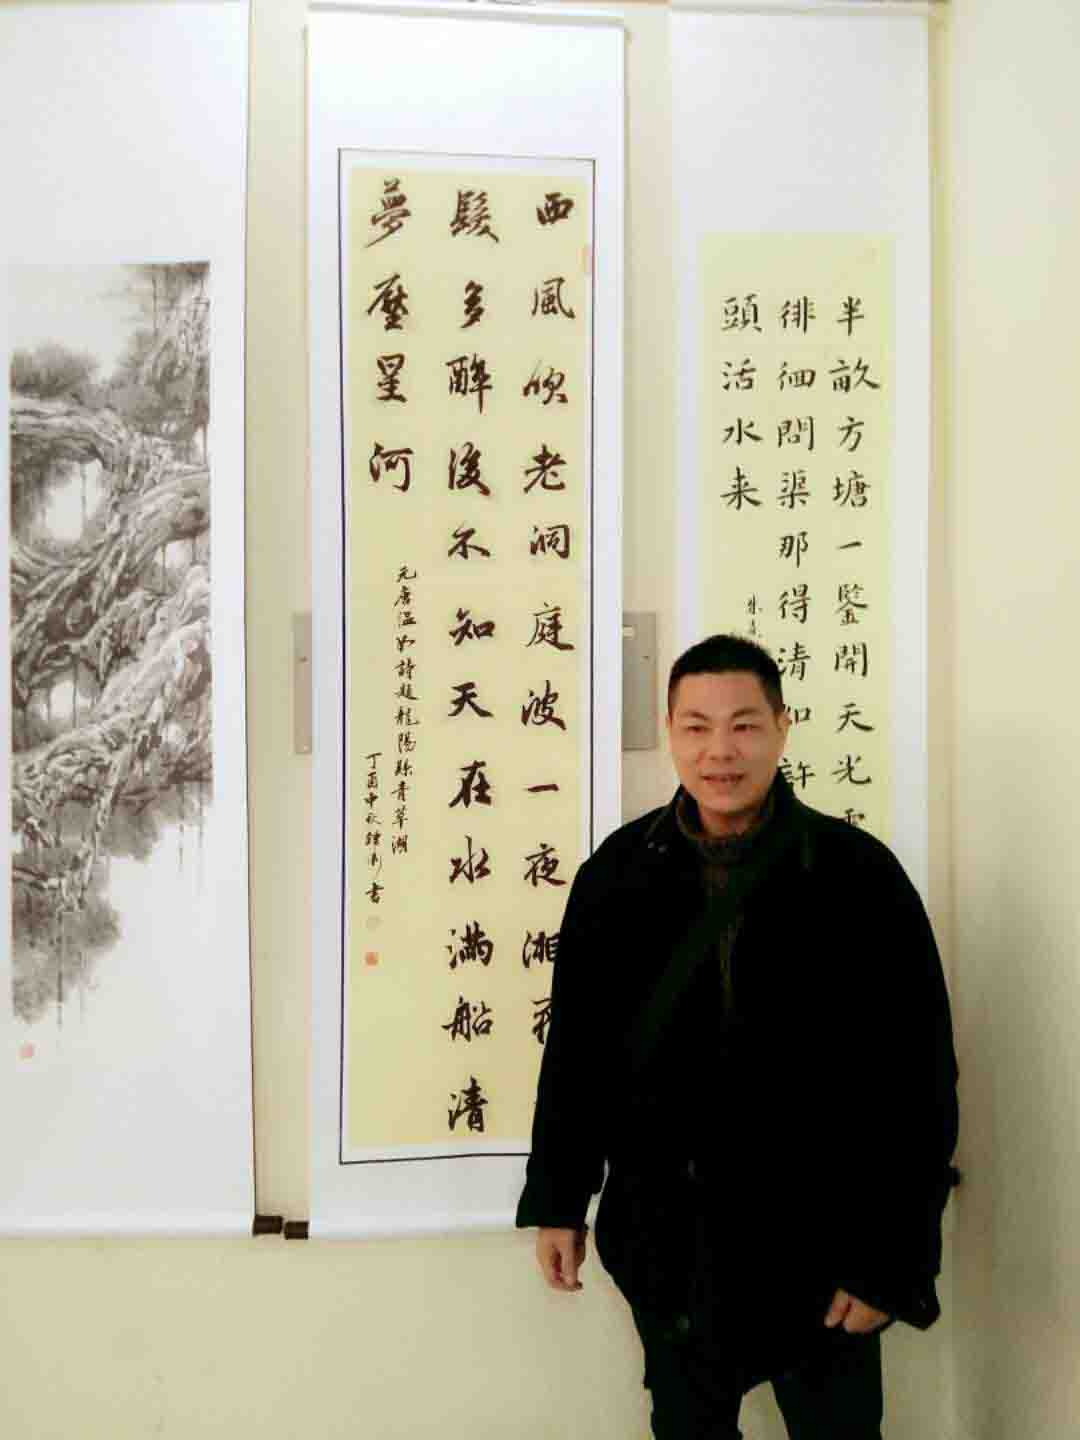 半畝方塘一鑒開天光
徘徊問渠那得清如許
頭活水来
西風吹老洞庭波一夜湘
髮多醉後不知天在水滿船清
夢壓星河
元唐温如詩題龍陽縣青草湖
丁酉中秋書